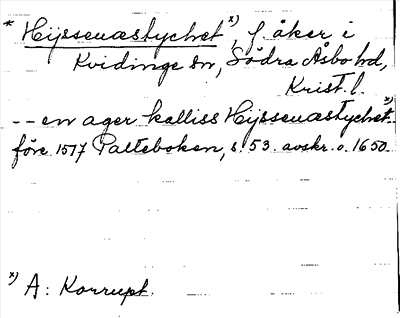 * Hijssenæstychet x), f. åker i
Kvidinge sn, Södra Åsbo hd,
Krist. l.
-- en ager kalliss Hijssenæstychet x)--
före 1517 Palteboken, s. 53. avskr. o. 1650.
x) A: Korrupt.